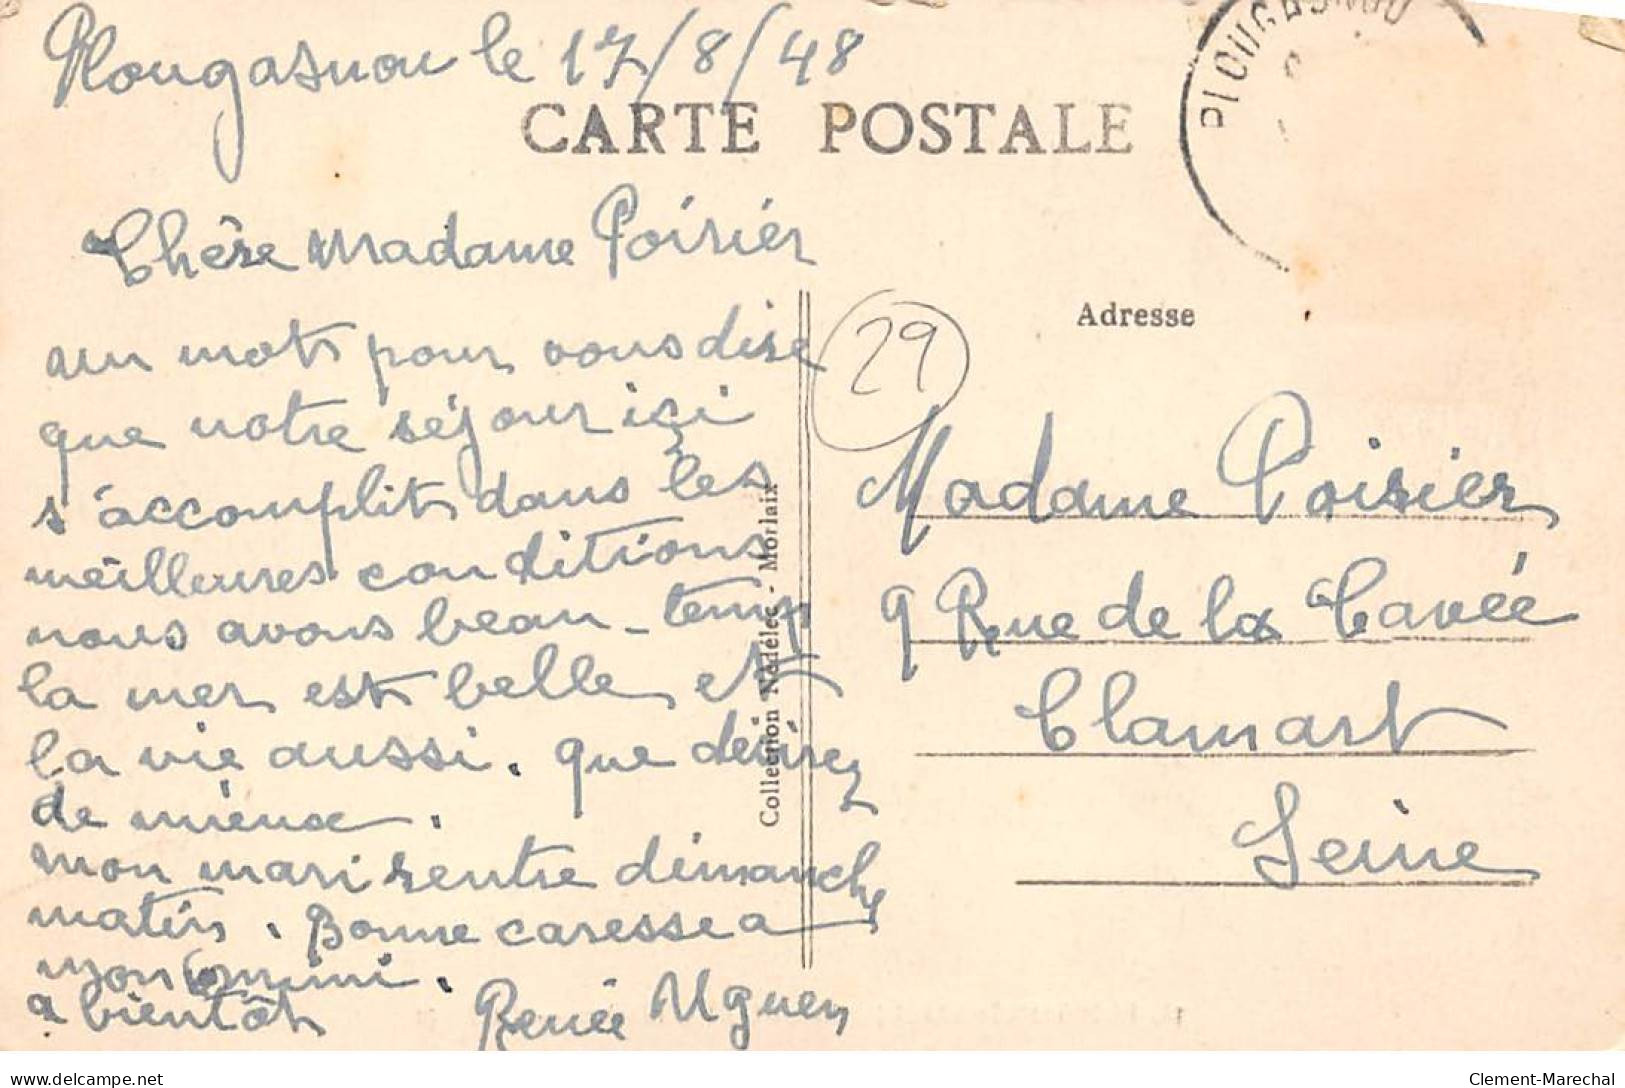 Plougasnou le 17/8/48
PLOUGASNOU
CARTE POSTALE
Chère Madame Poirier
un mot pour vous dire
que notre séjour içi
s'accomplit dans les
meilleures conditions
nous avons beau-temps
la mer est belle et
la vie aussi. que désirez
de mieux.
mon mari rentre dimanche
matin. Bonne caresse a
mon mimi.
a bientôt Renée Uguen
Collection Nédélec - Morlaix
29
Adresse
Madame Poirier
9 Rue de la Cavée
Clamart
Seine
delcampe.net
Clement-Marechal